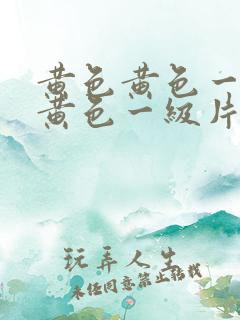 黄色黄色一
黄色一級片
玩弄人生
未经同意禁止转载